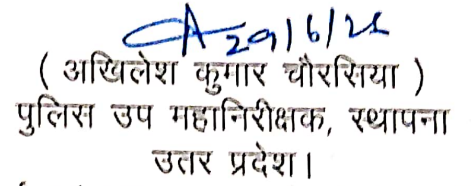 29/6/25
( अखिलेश कुमार चौरसिया )
पुलिस उप महानिरीक्षक, स्थापना
उतर प्रदेश।